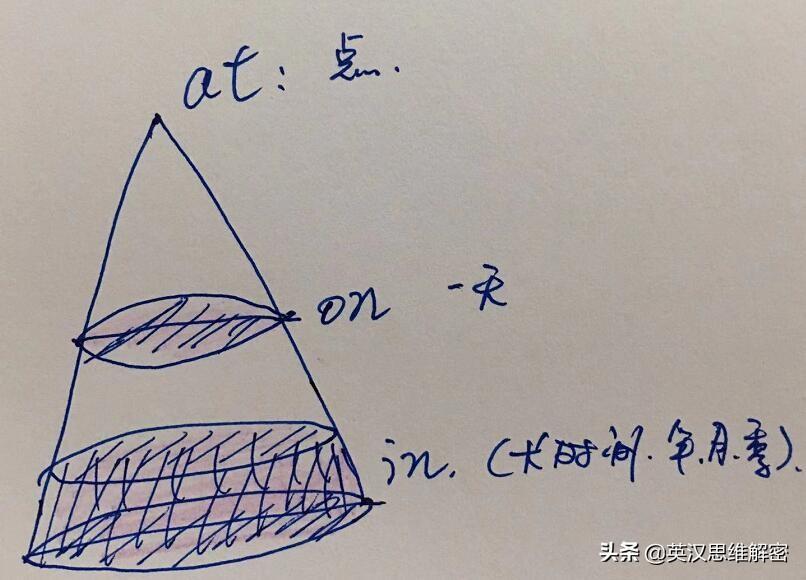 at：点.
on 一天
in. (大时间.年.月.季).
头条 @英汉思维解密